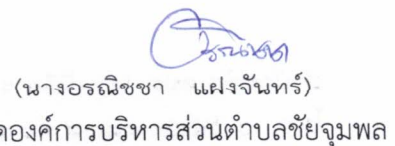 (นางอรณิชชา แฝงจันทร์)
ดองค์การบริหารส่วนตำบลชัยจุมพล